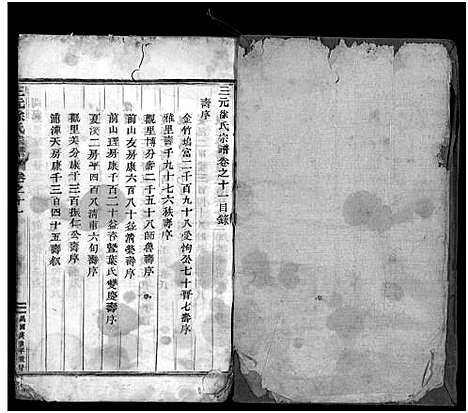 三元徐氏宗譜卷之十一目錄
壽序
金竹塢富二千百九十八愛恂公七十晉七壽序
雅里壽千九十七六秩壽序
觀里博分壽二千五十八師魯壽序
前山友房康六百八十益清
前山理房康千百二十益春暨葉氏雙慶壽序
夏溪二房平四百八清甫六旬壽序
觀里美分康千三百振仁公壽序
浦溪天房康千三百四十五壽敘
三元徐氏
卷之十一